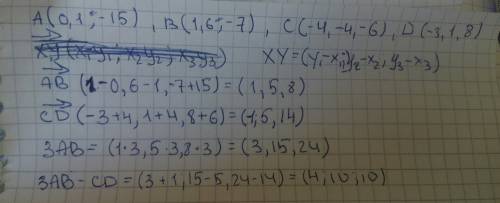 A(0,1;-15), B(1,6;-7), C(-4,-4,-6), D(-3,1,8)
XY=(y₁-x₁;y₂-x₂,y₃-x₃)
AB(1-0,6-1,-7+15)=(1,5,8)
CD(-3+4,1+4,8+6)=(-1;5,14)
3AB=(1·3,5·3,8·3)=(3,15,24)
3AB-CD=(3+1,15-5,24-14)=(4;10;10)